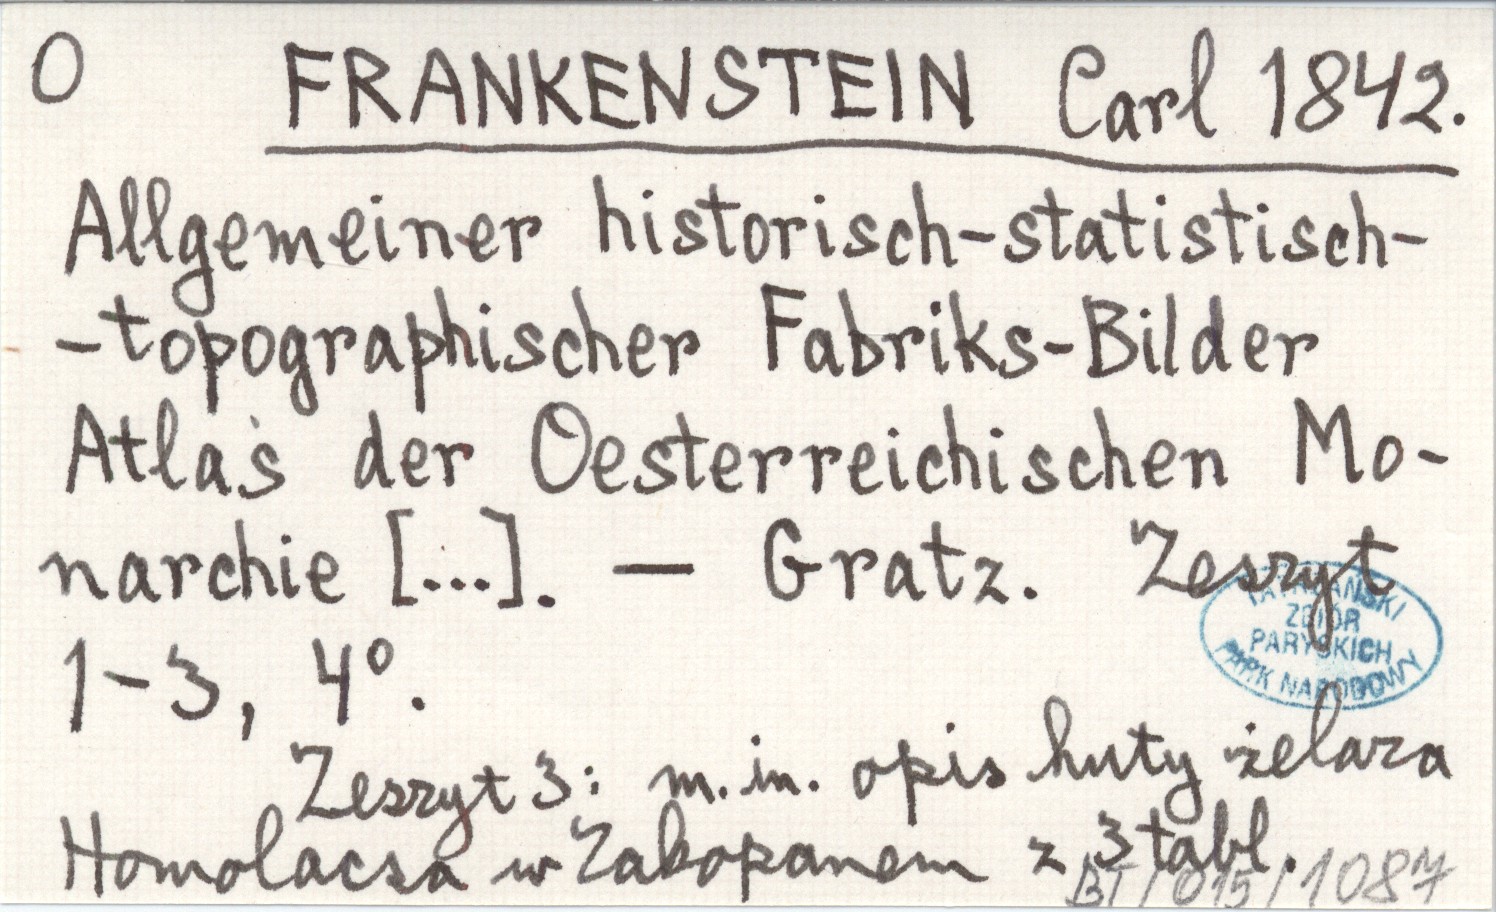 O FRANKENSTEIN Carl 1842.
Allgemeiner historisch-statistisch-
-topographischer Fabriks-Bilder
Atlas der Oesterreichischen Mo-
narchie [...]. — Gratz. Zeszyt
TATRZAŃSKI
ZBIÓR
PARYSKICH
PARK NARODOWY
1-3, 4°.
Zeszyt 3: m.in. opis huty żelaza
Homolacsa w Zakopanem z 3 tabl.
BT/015/1087